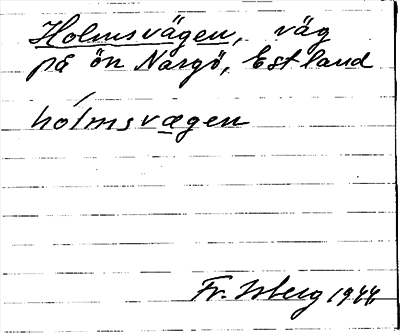 Holmsvägen, väg
på ön Nargö, Estland
hólmsvægen
Fr. Isberg 1944